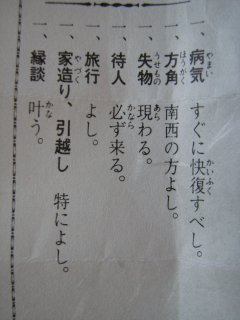 一、病気 すぐに快復すべし。
一、方角 南西の方よし。
一、失物 現わる。
一、待人 必ず来る。
一、旅行 よし。
一、家造り、引越し 特によし。
一、縁談 叶う。